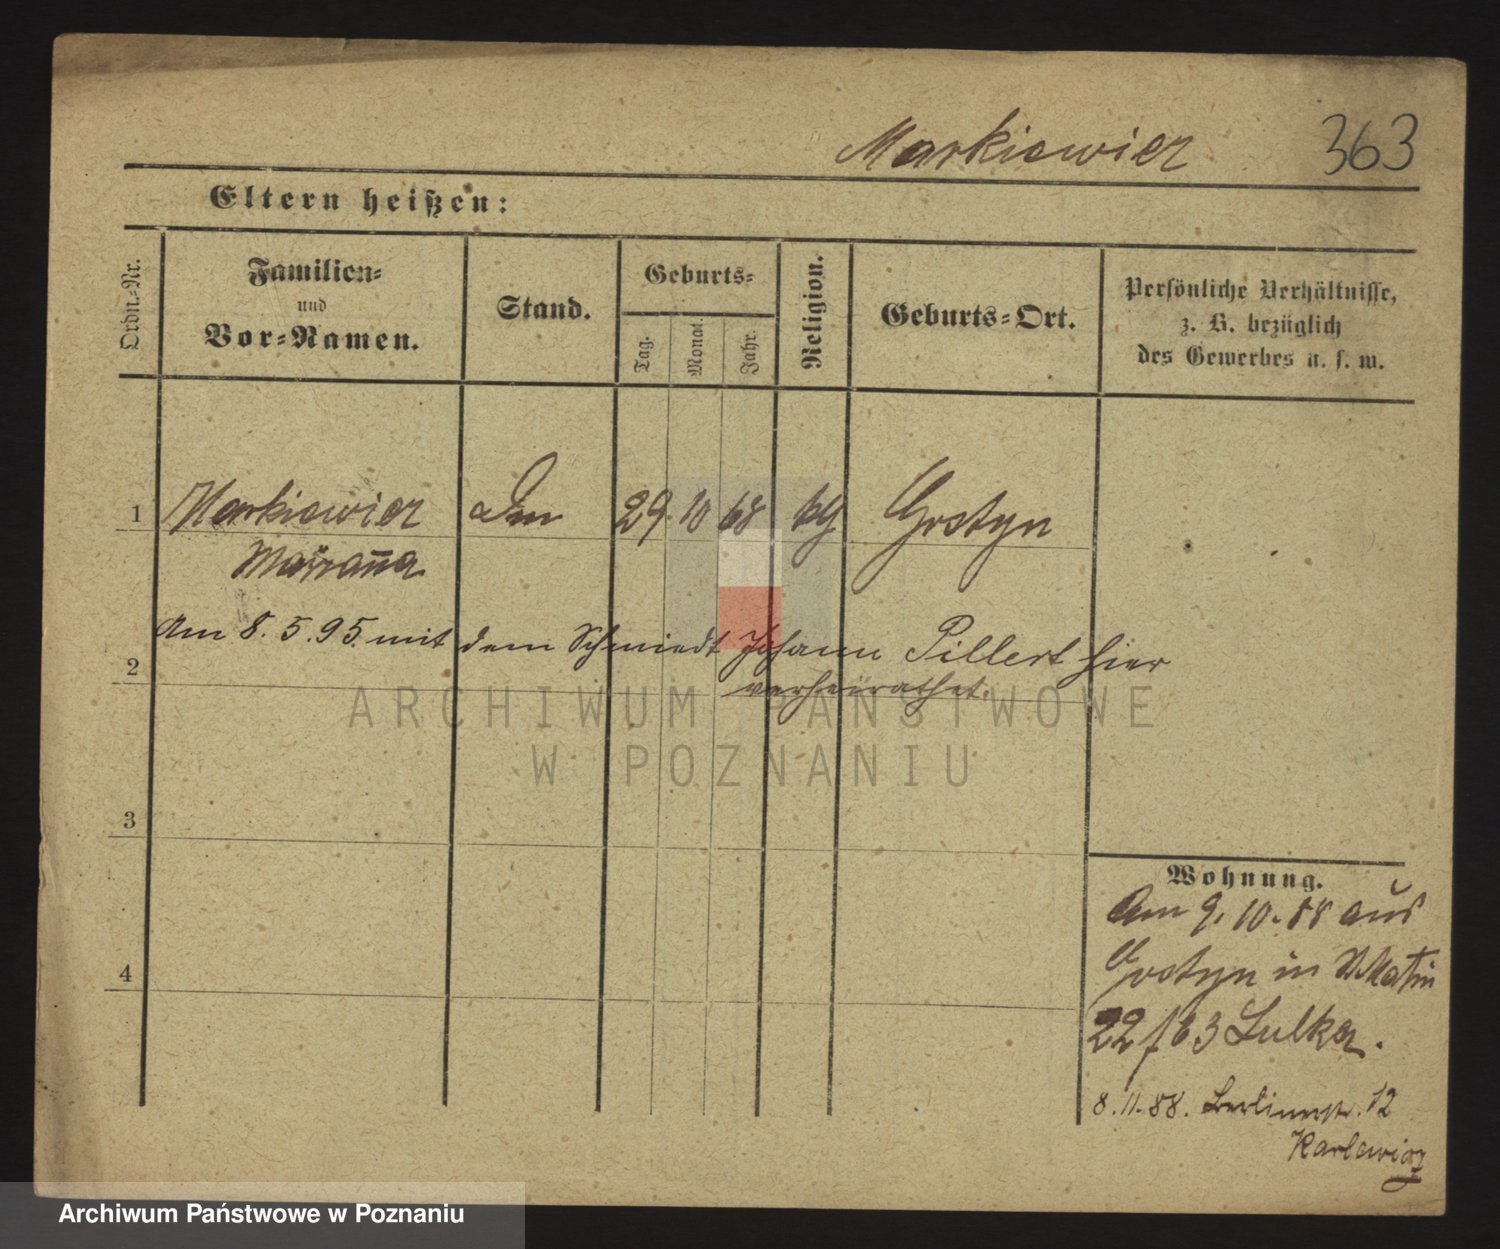 Markiewicz 363
Eltern heißen:
Ordn.-Nr.
Familien-
und
Vor-Namen.
Stand.
Geburts-
Tag.
Monat.
Jahr.
Religion.
Geburts-Ort.
Persönliche Verhältnisse,
z. B. bezüglich
des Gewerbes u. s. w.
1 Markiewicz 29 10 68 Gostyn
Maryanna
Am 8. 5. 95. mit dem Schmiedt Johann Pillert hier
2 verheirathet.
ARCHIWUM PAŃSTWOWE
W POZNANIU
3
4
Wohnung.
Am 9. 10. 88 aus
Gostyn in
22/63 Lulka.
8. 11. 88. Berlinerstr. 12
Archiwum Państwowe w Poznaniu